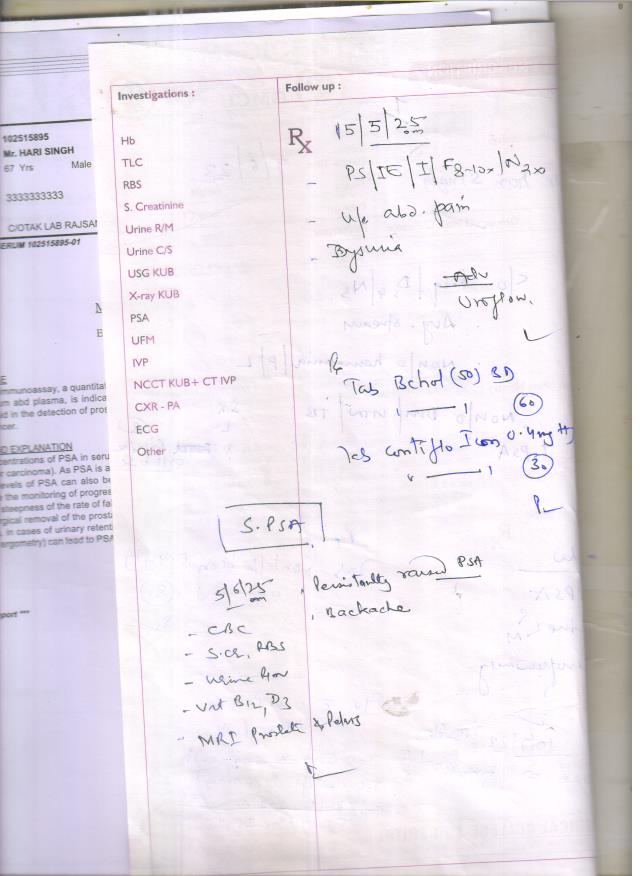 102515895
Mr. HARI SINGH
67 Yrs Male
3333333333
C/OTAK LAB RAJSAI
ERUM 102515895-01
immunoassay, a quantitat
abd plasma, is indica
id in the detection of pros
ncer.
D EXPLANATION
centrations of PSA in seru
r carcinoma). As PSA is a
evels of PSA can also be
the monitoring of progres
steepness of the rate of fa
rgical removal of the prosta
. in cases of urinary retenti
ergometry) can lead to PSA
port ***
Investigations :
Hb
TLC
RBS
S. Creatinine
Urine R/M
Urine C/S
USG KUB
X-ray KUB
PSA
UFM
IVP
NCCT KUB+ CT IVP
CXR - PA
ECG
Other
Follow up :
Rx 15/5/25
PS/IE/I/F8-10x/N2x
- abd. pain
- Dysuria
Adv
Uroflow.
Rx
Tab Bchol (50) BD
60
Tab Contiflo Icon 0.4mg
30
S. PSA
5/6/25 . Persistantly raised PSA
. Backache
- CBC
- S.Cr, RBS
- Urine
- Vit B12, D3
- MRI Prostate & Pelvis